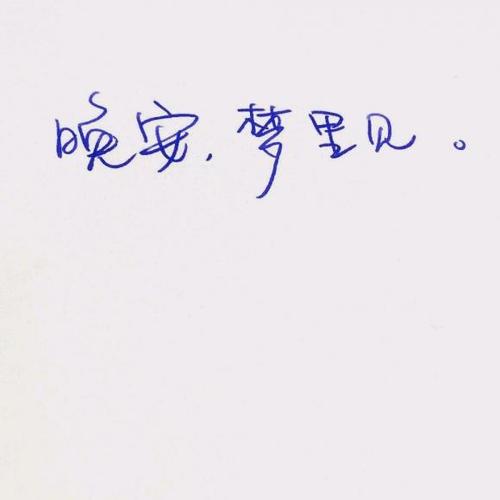 晚安，梦里见。